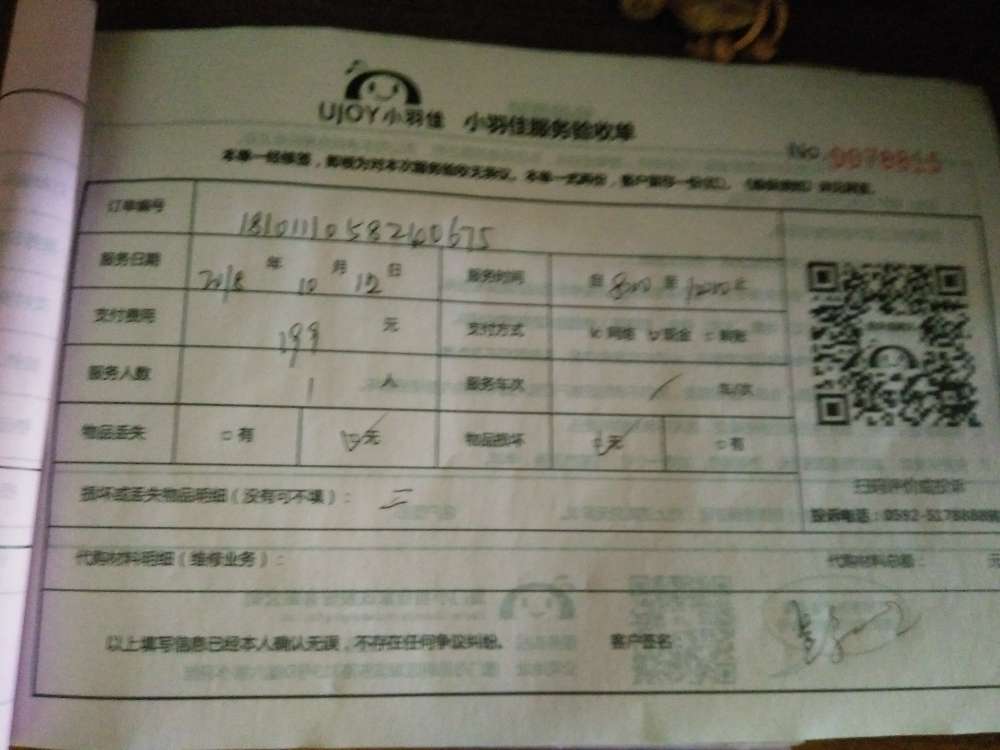 UJOY小羽佳 小羽佳服务验收单
No 0078815
本单一经修签，即视为对本次服务验收无异议。本单一式两份，客户留存一份
订单编号
服务日期 2018 年 10 月 12 日 服务时间 自 800 至 1200 止
支付费用 199 元 支付方式 网络 现金 转账
服务人数 1 人 服务车次 / 车/次
物品丢失 □有 ☑无 物品损坏 ☑无 □有
损坏或丢失物品明细（没有可不填）：
扫码评价或投诉
投诉电话：0592-5178888
代购材料明细（维修业务）： 代购材料总额： 元
以上填写信息已经本人确认无误，不存在任何争议纠纷。 客户签名